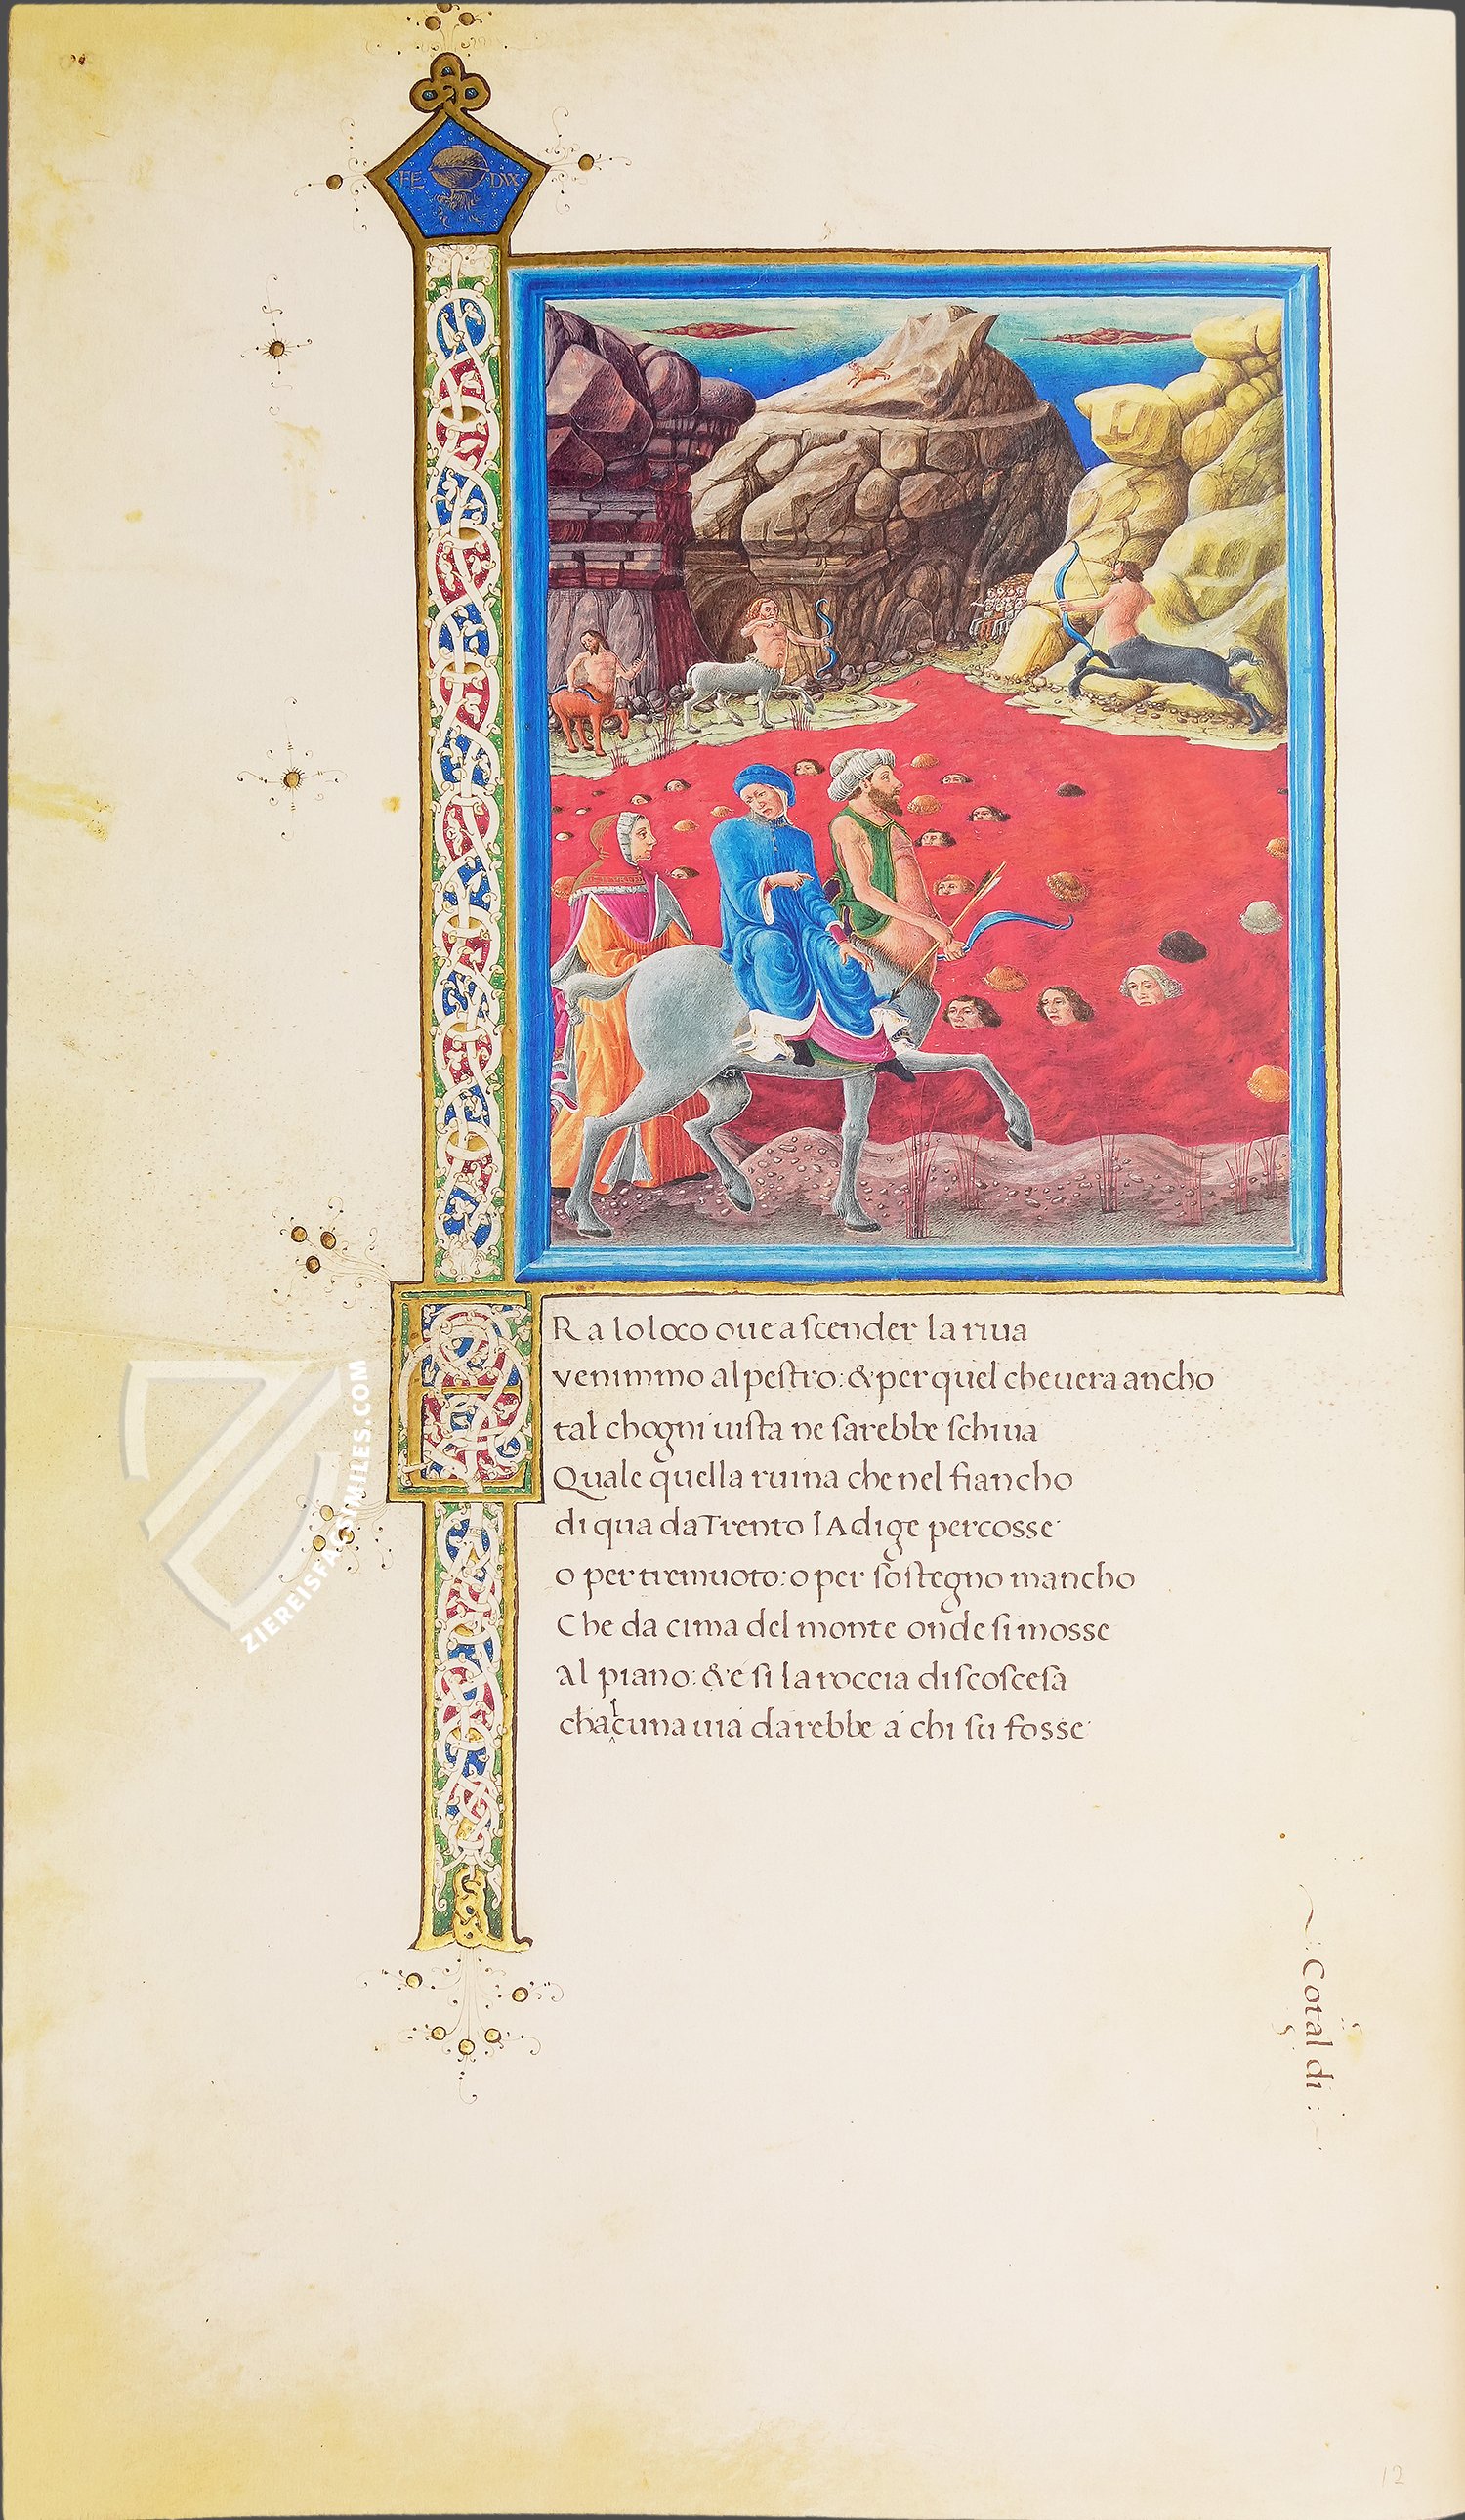 FE DVX
ERa lo loco oue a scender la riua
venimmo alpestro: & per quel che uera ancho
tal chogni uista ne sarebbe schiua
Quale quella ruina che nel fiancho
di qua da Trento lAdige percosse
o per tremuoto: o per sostegno mancho
Che da cima del monte onde si mosse
al piano: & e si la roccia discoscesa
chalcuna uia darebbe a chi su fosse
: Cotal di :
12
ZIEREISFACSIMILES.COM